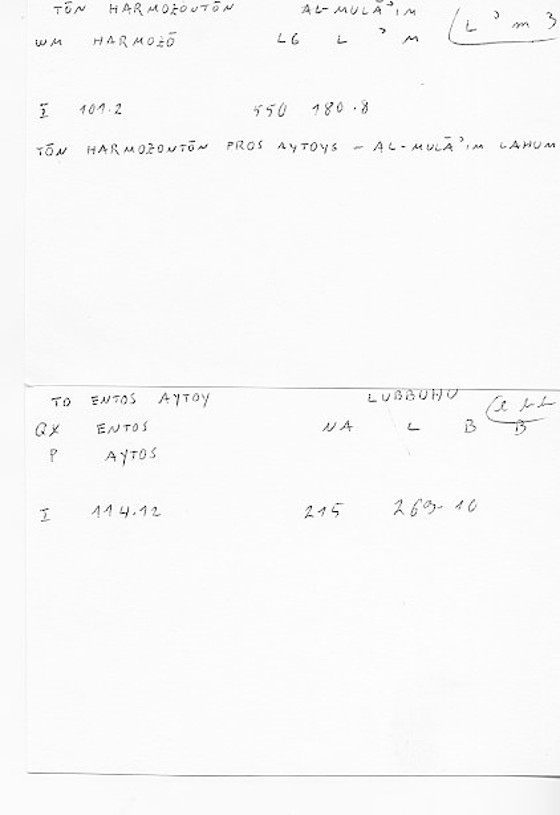 TŌN HARMOZONTŌN AL-MULĀʾIM
WM HARMOZŌ LG L ʾ M (L ʾ m 3
I 101.2 550 180.8
TŌN HARMOZONTŌN PROS AYTOYS – AL-MULĀʾIM LAHUM
TO ENTOS AYTOY LUBBUHU
QX ENTOS NA L B B
P AYTOS
I 114.12 215 269.10